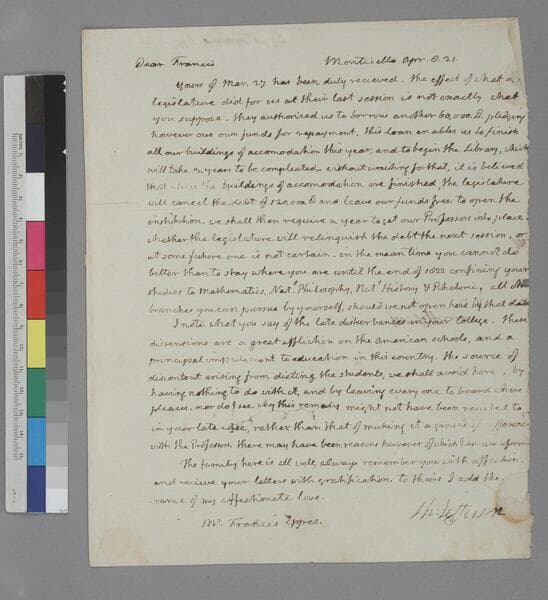 Dear Francis Monticello Apr. 8. 21.
Yours of Mar. 27 has been duly recieved. the effect of what a
legislature did for us at their last session is not exactly what
you suppose. they authorised us to borrow another 60,000. D. pledging
however our own funds for repayment. this loan enables us to finish
all our buildings of accomodation this year, and to begin the Library, which
will take 2 years to be compleated. without waiting for that, it is believed
that when the buildings of accomodation are finished the legislature
will cancel the debt of 120,000 D. and leave our funds free to open the
institution. we shall then require a year to get our Professors into place.
whether the legislature will relinquish the debt the next session, or
at some future one is not certain. in the mean time you cannot do
better than to stay where you are until the end of 1822 confining your
studies to Mathematics, Nat. Philosophy, Natl. History & Rhetoric, all
branches you can pursue by yourself, should we not open here by that date
I note what you say of the late disturbances in your College. These
dissensions are a great affliction on the American schools, and a
principal impediment to education in this country. the source of
discontent arising from dieting the students, we shall avoid here, by
having nothing to do with it, and by leaving every one to board where he
pleases. nor do I see why this remedy might not have been to
in your late case, rather than that of making it a ground of
with the Professor. there may have been reasons however of which I am
The family here is all well, always remember you with affection
and recieve your letters with gratification. to theirs I add the
-rance of my affectionate love.
Mr. Francis Eppes. Th: Jefferson